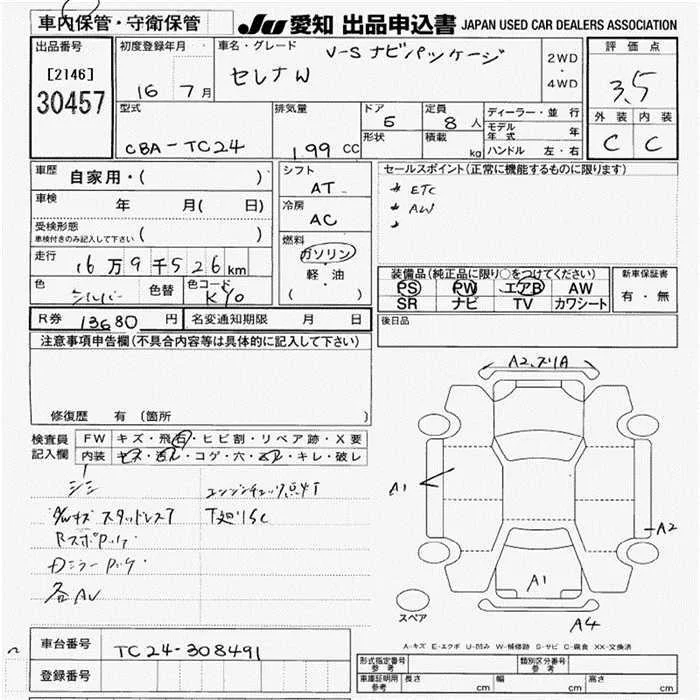 車内保管・守衛保管
JU 愛知 出品申込書 JAPAN USED CAR DEALERS ASSOCIATION
出品番号
[2146]
30457
初度登録年月
16 7月
車名・グレード
V-S ナビパッケージ
セレナW
2WD
・
4WD
評価点
3.5
外装 内装
C C
型式
CBA-TC24
排気量
1.99 CC
ドア
5
定員
8 人
形状
積載
kg
ディーラー・並行
モデル年式 年
ハンドル 左・右
車歴
自家用・( )
車検
年 月( 日)
受検形態
車検付きのみ記入して下さい ( )
走行
16万9千526km
色
シルバー
色替
色コード
KY0
シフト
AT
冷房
AC
燃料
ガソリン
・
軽・油
( )
セールスポイント(正常に機能するものに限ります)
* ETC
* AW
*
装備品(純正品に限り○をつけてください)
PS PW エアB AW
SR ナビ TV カワシート
新車保証書
有・無
R券 13680 円
名変通知期限 月 日
後日品
注意事項申告欄(不具合内容等は具体的に記入して下さい)
修復歴 有(箇所 )
検査員
記入欄
FW キズ・飛石・ヒビ割・リペア跡・X要
内装 キズ・汚れ・コゲ・穴・スレ・キレ・破レ
シミ
エンジンチェック点灯
A/Wキズ スタッドレスT
T廻りSC
各AU
A2、スリA
A1
A2
A1
A4
スペア
A-キズ E-エクボ U-凹み W-補修跡 S-サビ C-腐食 XX-交換済
車台番号
TC24-308491
登録番号
形式指定番号 参考
類別区分番号 参考
車庫証明用 参考
長さ cm
幅 cm
高さ cm